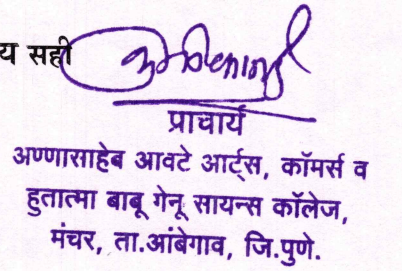 य सही
प्राचार्य
अण्णासाहेब आवटे आर्ट्स, कॉमर्स व
हुतात्मा बाबू गेनू सायन्स कॉलेज,
मंचर, ता.आंबेगाव, जि.पुणे.